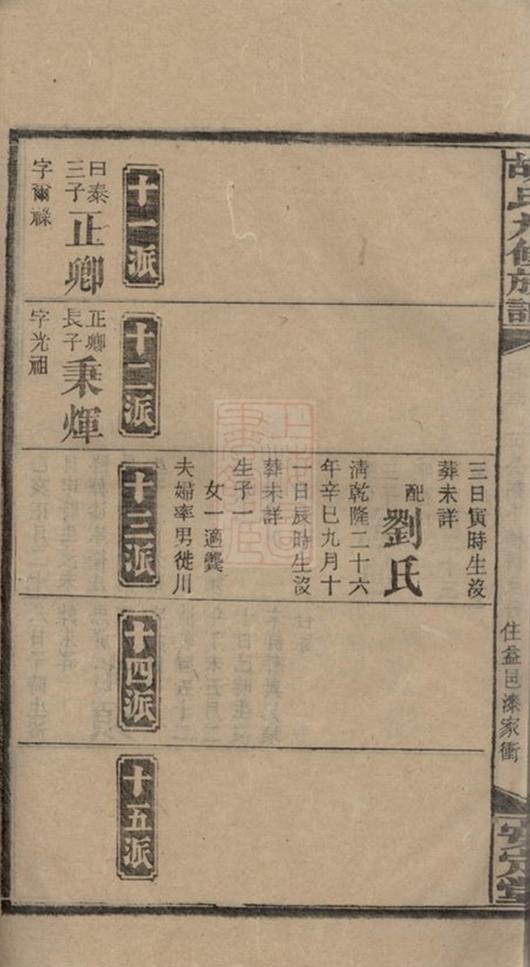 胡氏九修族譜
住益邑漆家衝
安定堂
三日寅時生沒
葬未詳
配劉氏
清乾隆二十六
年辛巳九月十
一日辰時生沒
葬未詳
生子一
女一適龔
夫婦率男徙川
十一派
十二派
十三派
十四派
十五派
曰泰三子正卿
字爾祿
正卿長子秉煇
字光祖